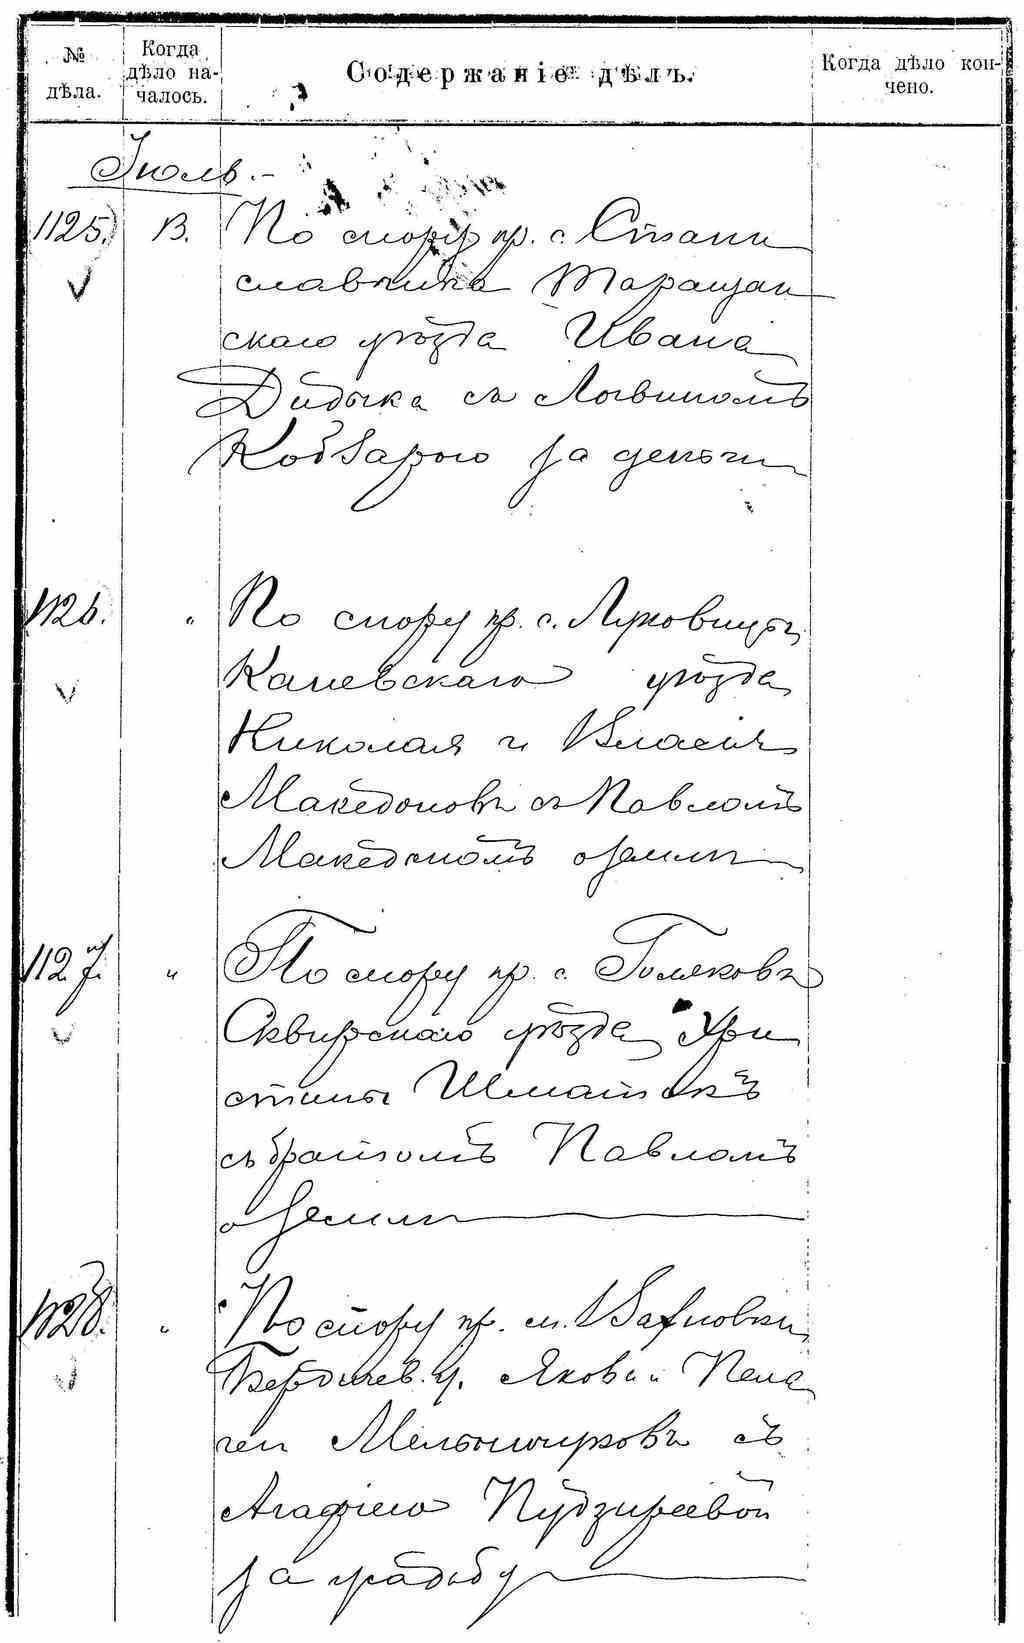 № дѣла.
Когда дѣло на-чалось.
Содержаніе дѣлъ.
Когда дѣло кон-чено.
Іюль.
1125. 13. По спору кр. с. Стани
славчика Таращан
скаго уѣзда Ивана
Дидыка съ Логвиномъ
Кобзарью за деньги
1126. " По спору кр. с. Луковицы
Каневскаго уѣзда
Николая и Власія
Македоновъ съ Павломъ
Македономъ о земли
1127. " По спору кр. с. Голяковъ
Сквирскаго уѣзда Хри
стины Шматокъ
съ братомъ Павломъ
о земли
1128. " По спору кр. м. Вахновки
Бердичев. у. Якова и Пела
геи Мельничуковъ съ
Агафіею
за усадьбу